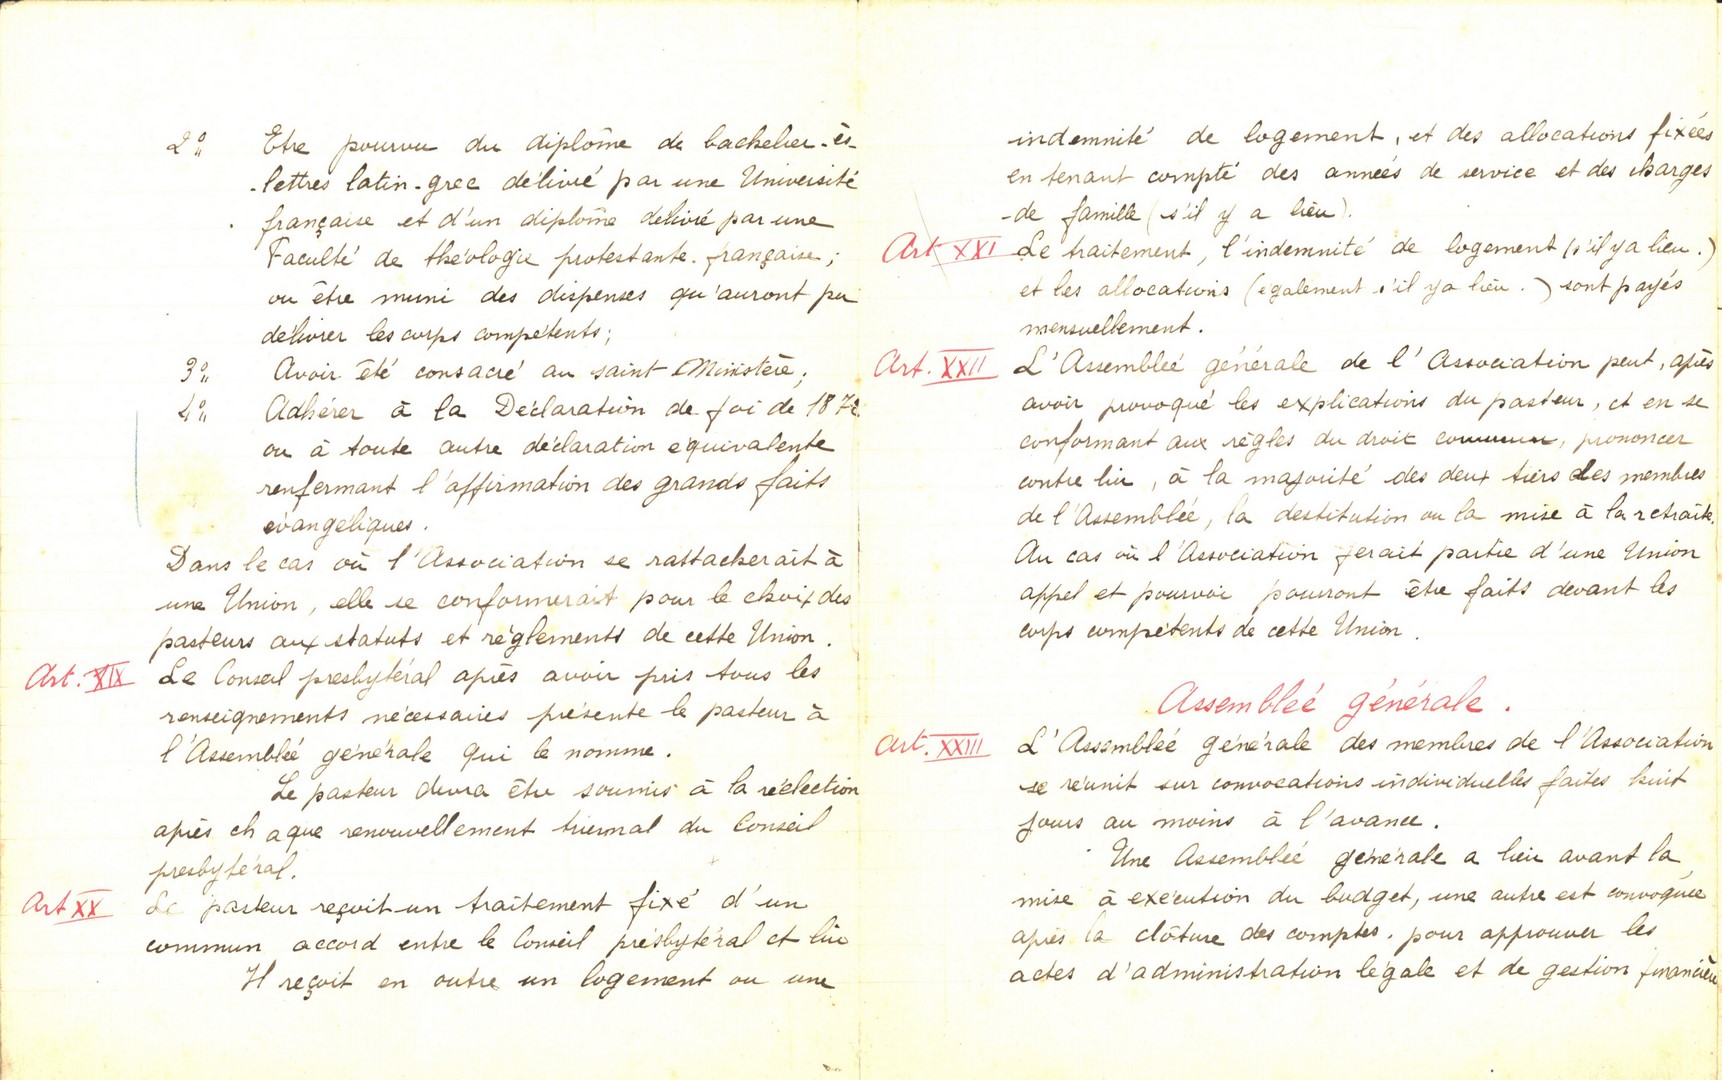 2° Etre pourvu du diplôme de bachelier-ès-
-lettres latin-grec délivré par une Université
française et d'un diplôme délivré par une
Faculté de théologie protestante française ;
ou être muni des dispenses qu'auront pu
délivrer les corps compétents ;
3° Avoir été consacré au saint Ministère ;
4° Adhérer à la Déclaration de foi de 1872
ou à toute autre déclaration équivalente
renfermant l'affirmation des grands faits
évangéliques .
Dans le cas où l'Association se rattacherait à
une Union, elle se conformerait pour le choix des
pasteurs aux statuts et règlements de cette Union .
Art. XIX Le Conseil presbytéral après avoir pris tous les
renseignements nécessaires présente le pasteur à
l'Assemblée générale qui le nomme .
Le pasteur devra être soumis à la réélection
après chaque renouvellement triennal du Conseil
presbytéral.
Art XX Le pasteur reçoit un traitement fixé d'un
commun accord entre le Conseil présbytéral et lui
Il reçoit en outre un logement ou une
indemnité de logement, et des allocations fixées
en tenant compte des années de service et des charges
-de famille (s'il y a lieu).
Art XXI Le traitement, l'indemnité de logement (s'il y a lieu .)
et les allocations (également s'il y a lieu .) sont payés
mensuellement .
Art. XXII L'Assemblée générale de l'Association peut, après
avoir provoqué les explications du pasteur, et en se
conformant aux règles du droit commun, prononcer
contre lui, à la majorité des deux tiers des membres
de l'Assemblée, la destitution ou la mise à la retraite.
Au cas où l'Association ferait partie d'une Union
appel et pourvoi pourront être faits devant les
corps compétents de cette Union .
Assemblée générale .
Art. XXIII L'Assemblée générale des membres de l'Association
se réunit sur convocations individuelles faites huit
jours au moins à l'avance .
Une Assemblée générale a lieu avant la
mise à exécution du budget, une autre est convoquée
après la clôture des comptes. pour approuver les
actes d'administration légale et de gestion financière